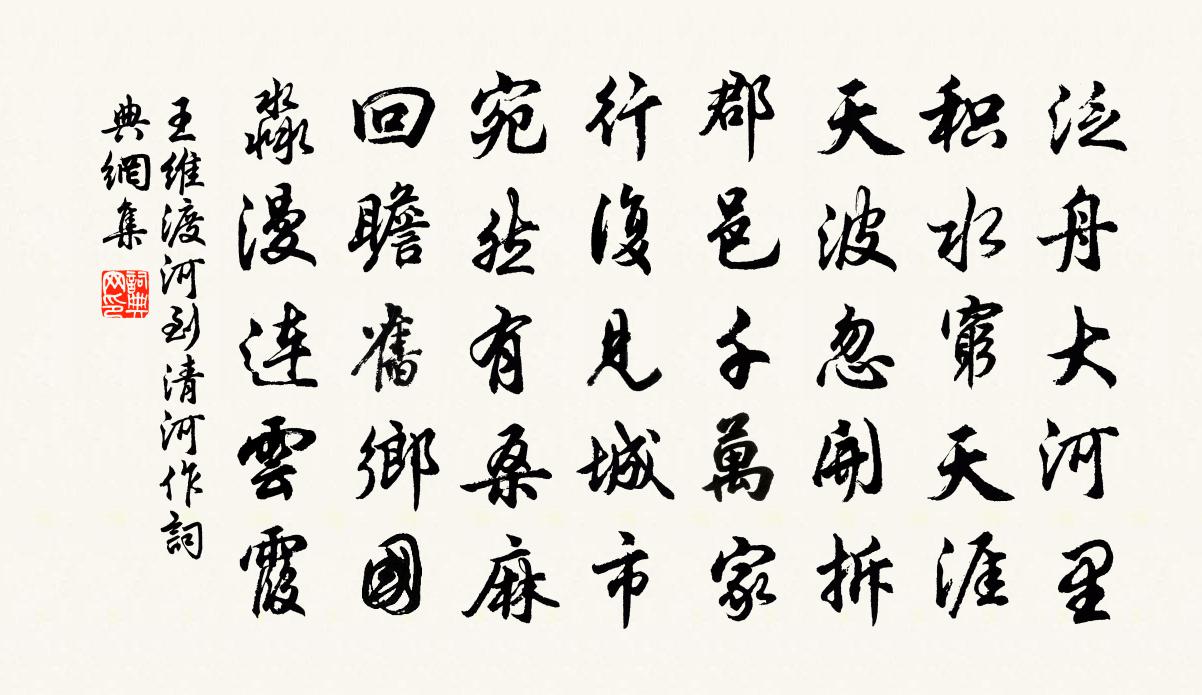 泛舟大河里
积水窮天涯
天波忽開拆
郡邑千萬家
行復見城市
宛然有桑麻
回瞻舊鄉國
淼漫連雲霞
王維渡河到清河作詞
典網集
詞典網印